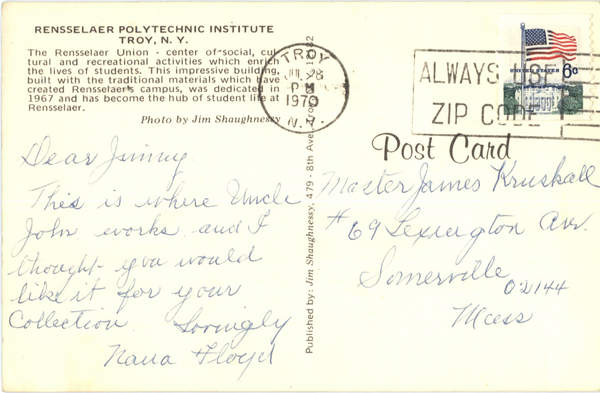 RENSSELAER POLYTECHNIC INSTITUTE
TROY, N. Y.
The Rensselaer Union - center of social, cul
tural and recreational activities which enrich
the lives of students. This impressive building,
built with the traditional materials which have
created Rensselaer's campus, was dedicated in
1967 and has become the hub of student life at
Rensselaer.
Photo by Jim Shaughnessy
TROY
PM
1970
N.Y.
ALWAYS USE
ZIP CODE
UNITED STATES 6c
Post Card
Published by: Jim Shaughnessy, 479 - 8th Ave.
Dear Jimmy
This is where Uncle
John works and I
thought you would
like it for your
Collection. Lovingly
Nana Floyd
Master James Kruskall
#69 Lexington Ave.
Somerville
02144
Mass